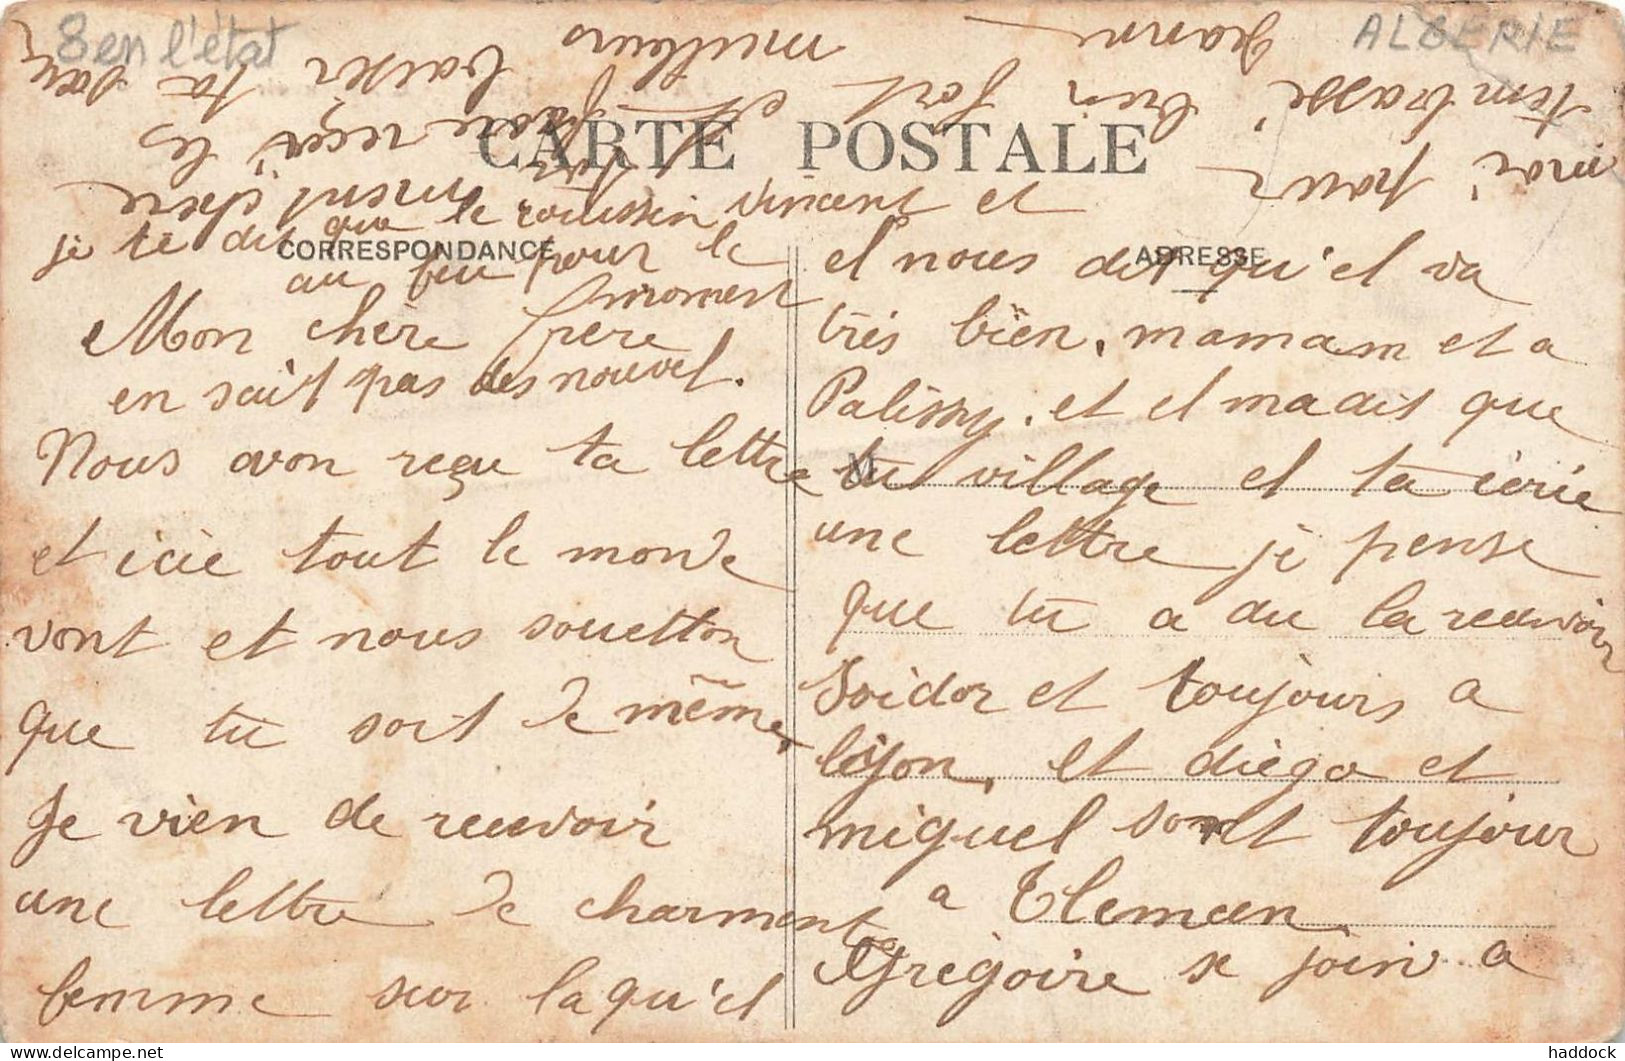 8 en l'état
ALGERIE
CARTE POSTALE
CORRESPONDANCE
ADRESSE
Mon chère frère
Nous avon reçu ta lettre
et icie tout le monde
vont et nous souetton
que tu sort de même.
Je vien de recevoir
une lettre de charmente
femme sur laqu'el
el nous dit qu'el va
très bien, mamam et a
Palissy. et el ma dit que
tu village el ta écrie
une lettre je pense
que tu a du la recevoir
Isidor et toujours a
lijon, et diego et
miguel sont toujour
a Tlemcen
Grégoire se join a
moi pour
t'embrasse bien fort et
Jeanne
meilleurs
baiser ta
les
reçoi
chere
je te dit que le cousin Vincent et
au feu pour le
moment
en sait pas des nouvel.
haddock